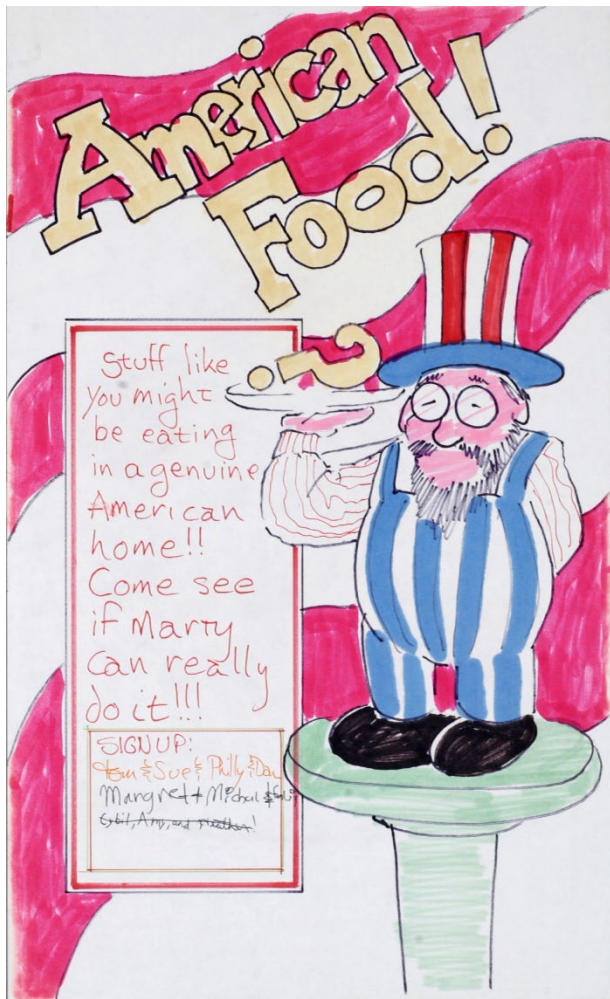 American
Food!
?
Stuff like
you might
be eating
in a genuine
American
home!!
Come see
if Marty
can really
do it!!!
SIGNUP:
tom & Sue & Philly & Dav
Margret + Michael &
Amy, and Heather!